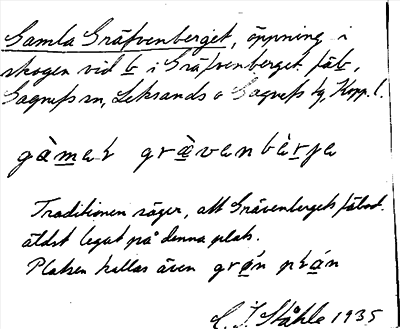 Gamla Gräfvenberget, öppning i
skogen vid b i Gräfvenberget fäb,
Gagnefs sn, Leksands o Gagnefs tg, Kopp. l.
gàmaɫ gràvanbærja
Traditionen säger, att Grävenbergets fäbod
äldst legat på denna plats.
Platsen kallas även
C. I. Ståhle 1935